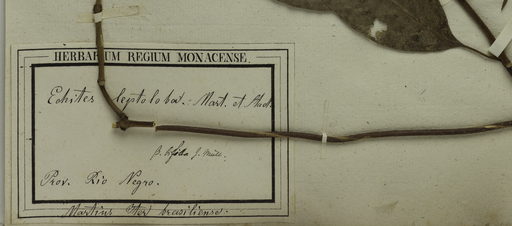 HERBARIUM REGIUM MONACENSE.
Echites leptoloba. Mart. et
β. J. Müll.
Prov. Rio Negro.
Martius Iter brasiliense.